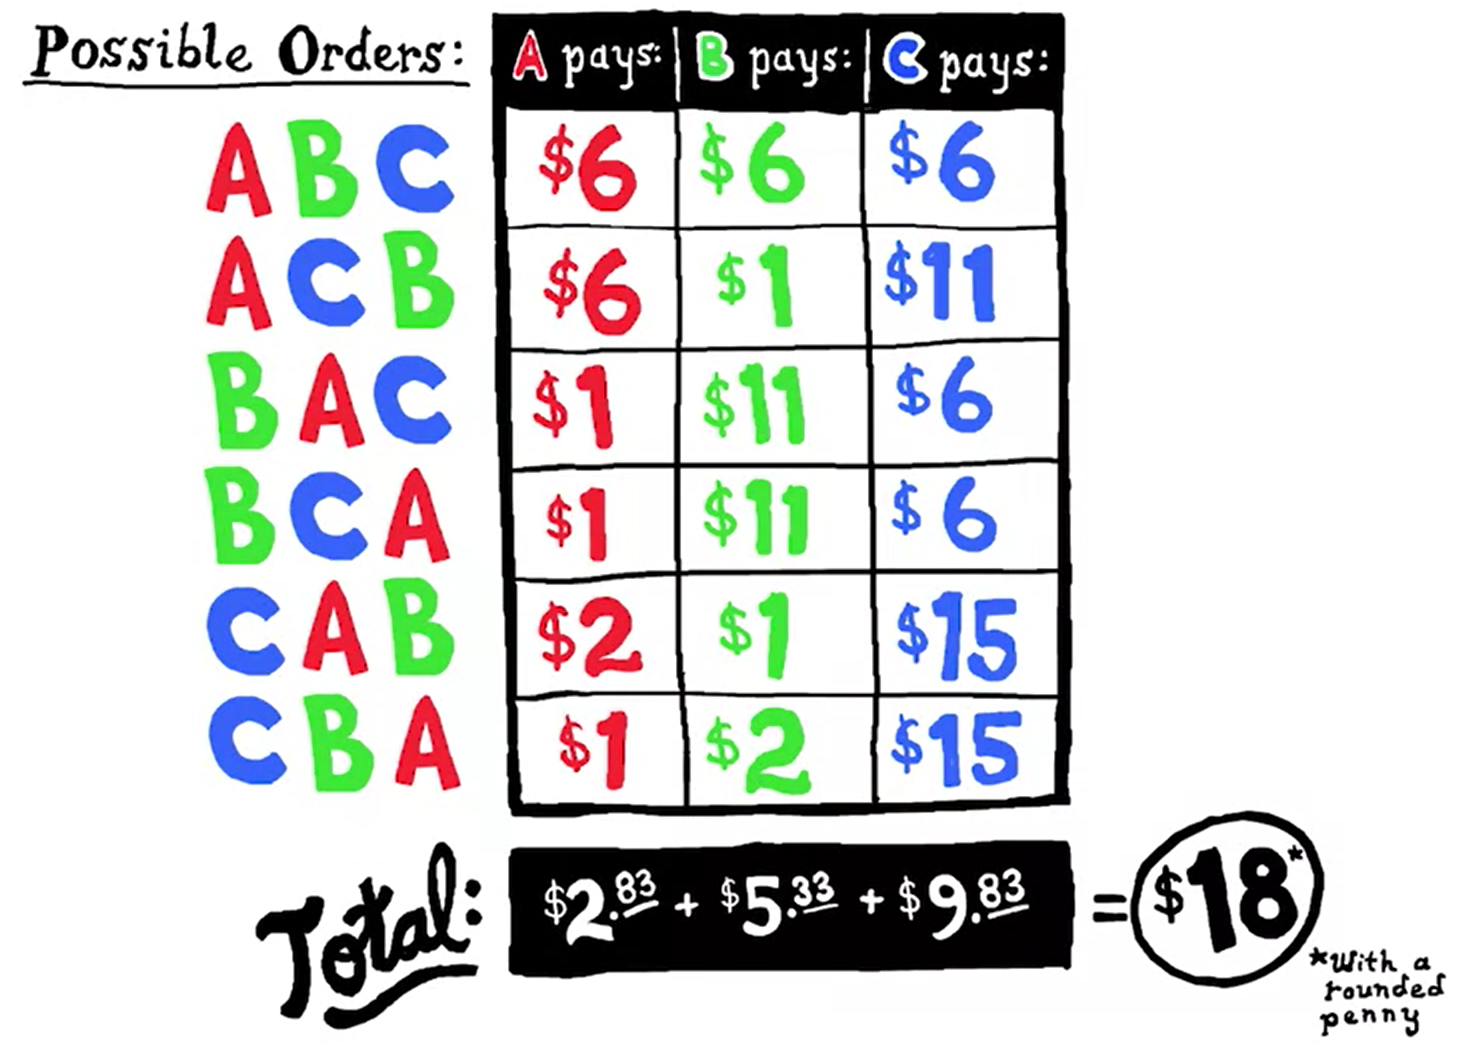 Possible Orders:
A pays: B pays: C pays:
A B C $6 $6 $6
A C B $6 $1 $11
B A C $1 $11 $6
B C A $1 $11 $6
C A B $2 $1 $15
C B A $1 $2 $15
Total: $2.83 + $5.33 + $9.83 = $18*
*With a
rounded
penny